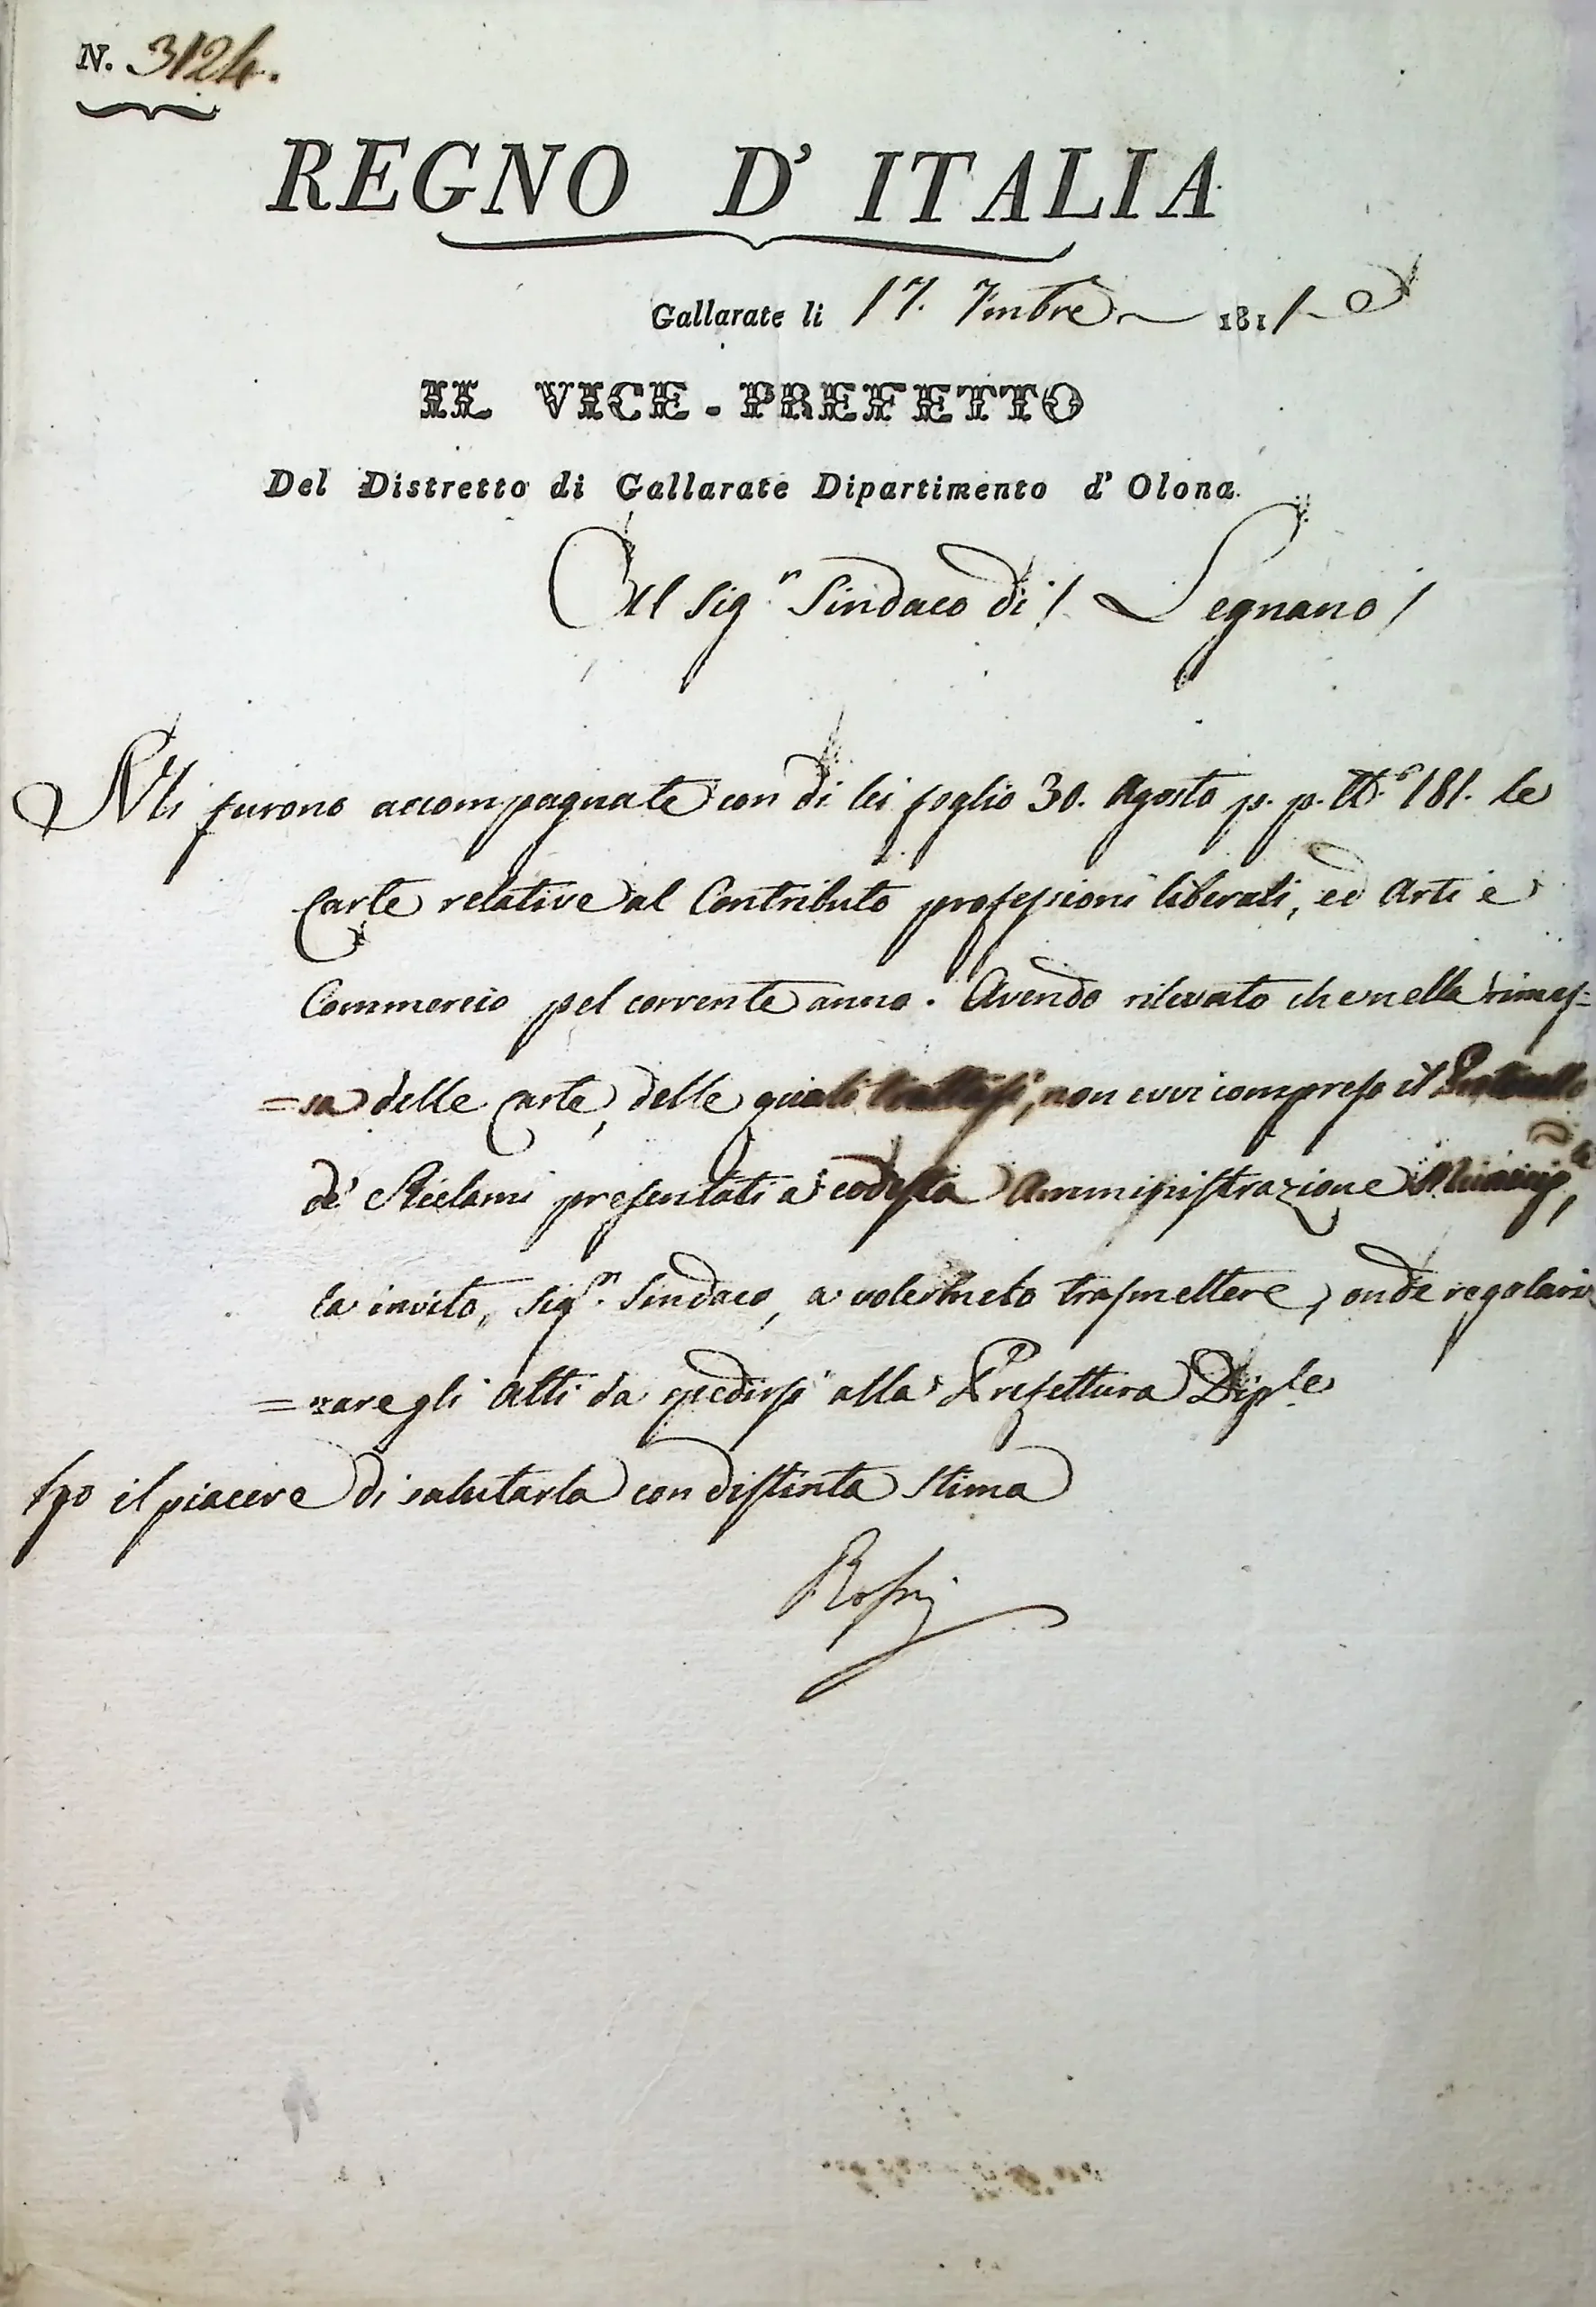 N. 3124.
REGNO D' ITALIA
Gallarate li 17. 7mbre 1811
IL VICE-PREFETTO
Del Distretto di Gallarate Dipartimento d' Olona.
Al Sig.r Sindaco di Legnano
Mi furono accompagnate con di lei foglio 30. Agosto p. p. N.o 181. le
Carte relative al Contributo professioni liberali, ed Arti e
Commercio pel corrente anno. Avendo rilevato che nella rimes-
=sa delle Carte, delle quali trattasi, non evvi compreso il Protocollo
de' Reclami presentati a codesta Amministrazione Municip.le,
la invito, Sig.r Sindaco, a volermelo trasmettere, onde regolariz
=zare gli Atti da spedirsi alla Prefettura Dip.le
Ho il piacere di salutarla con distinta stima
Rossi